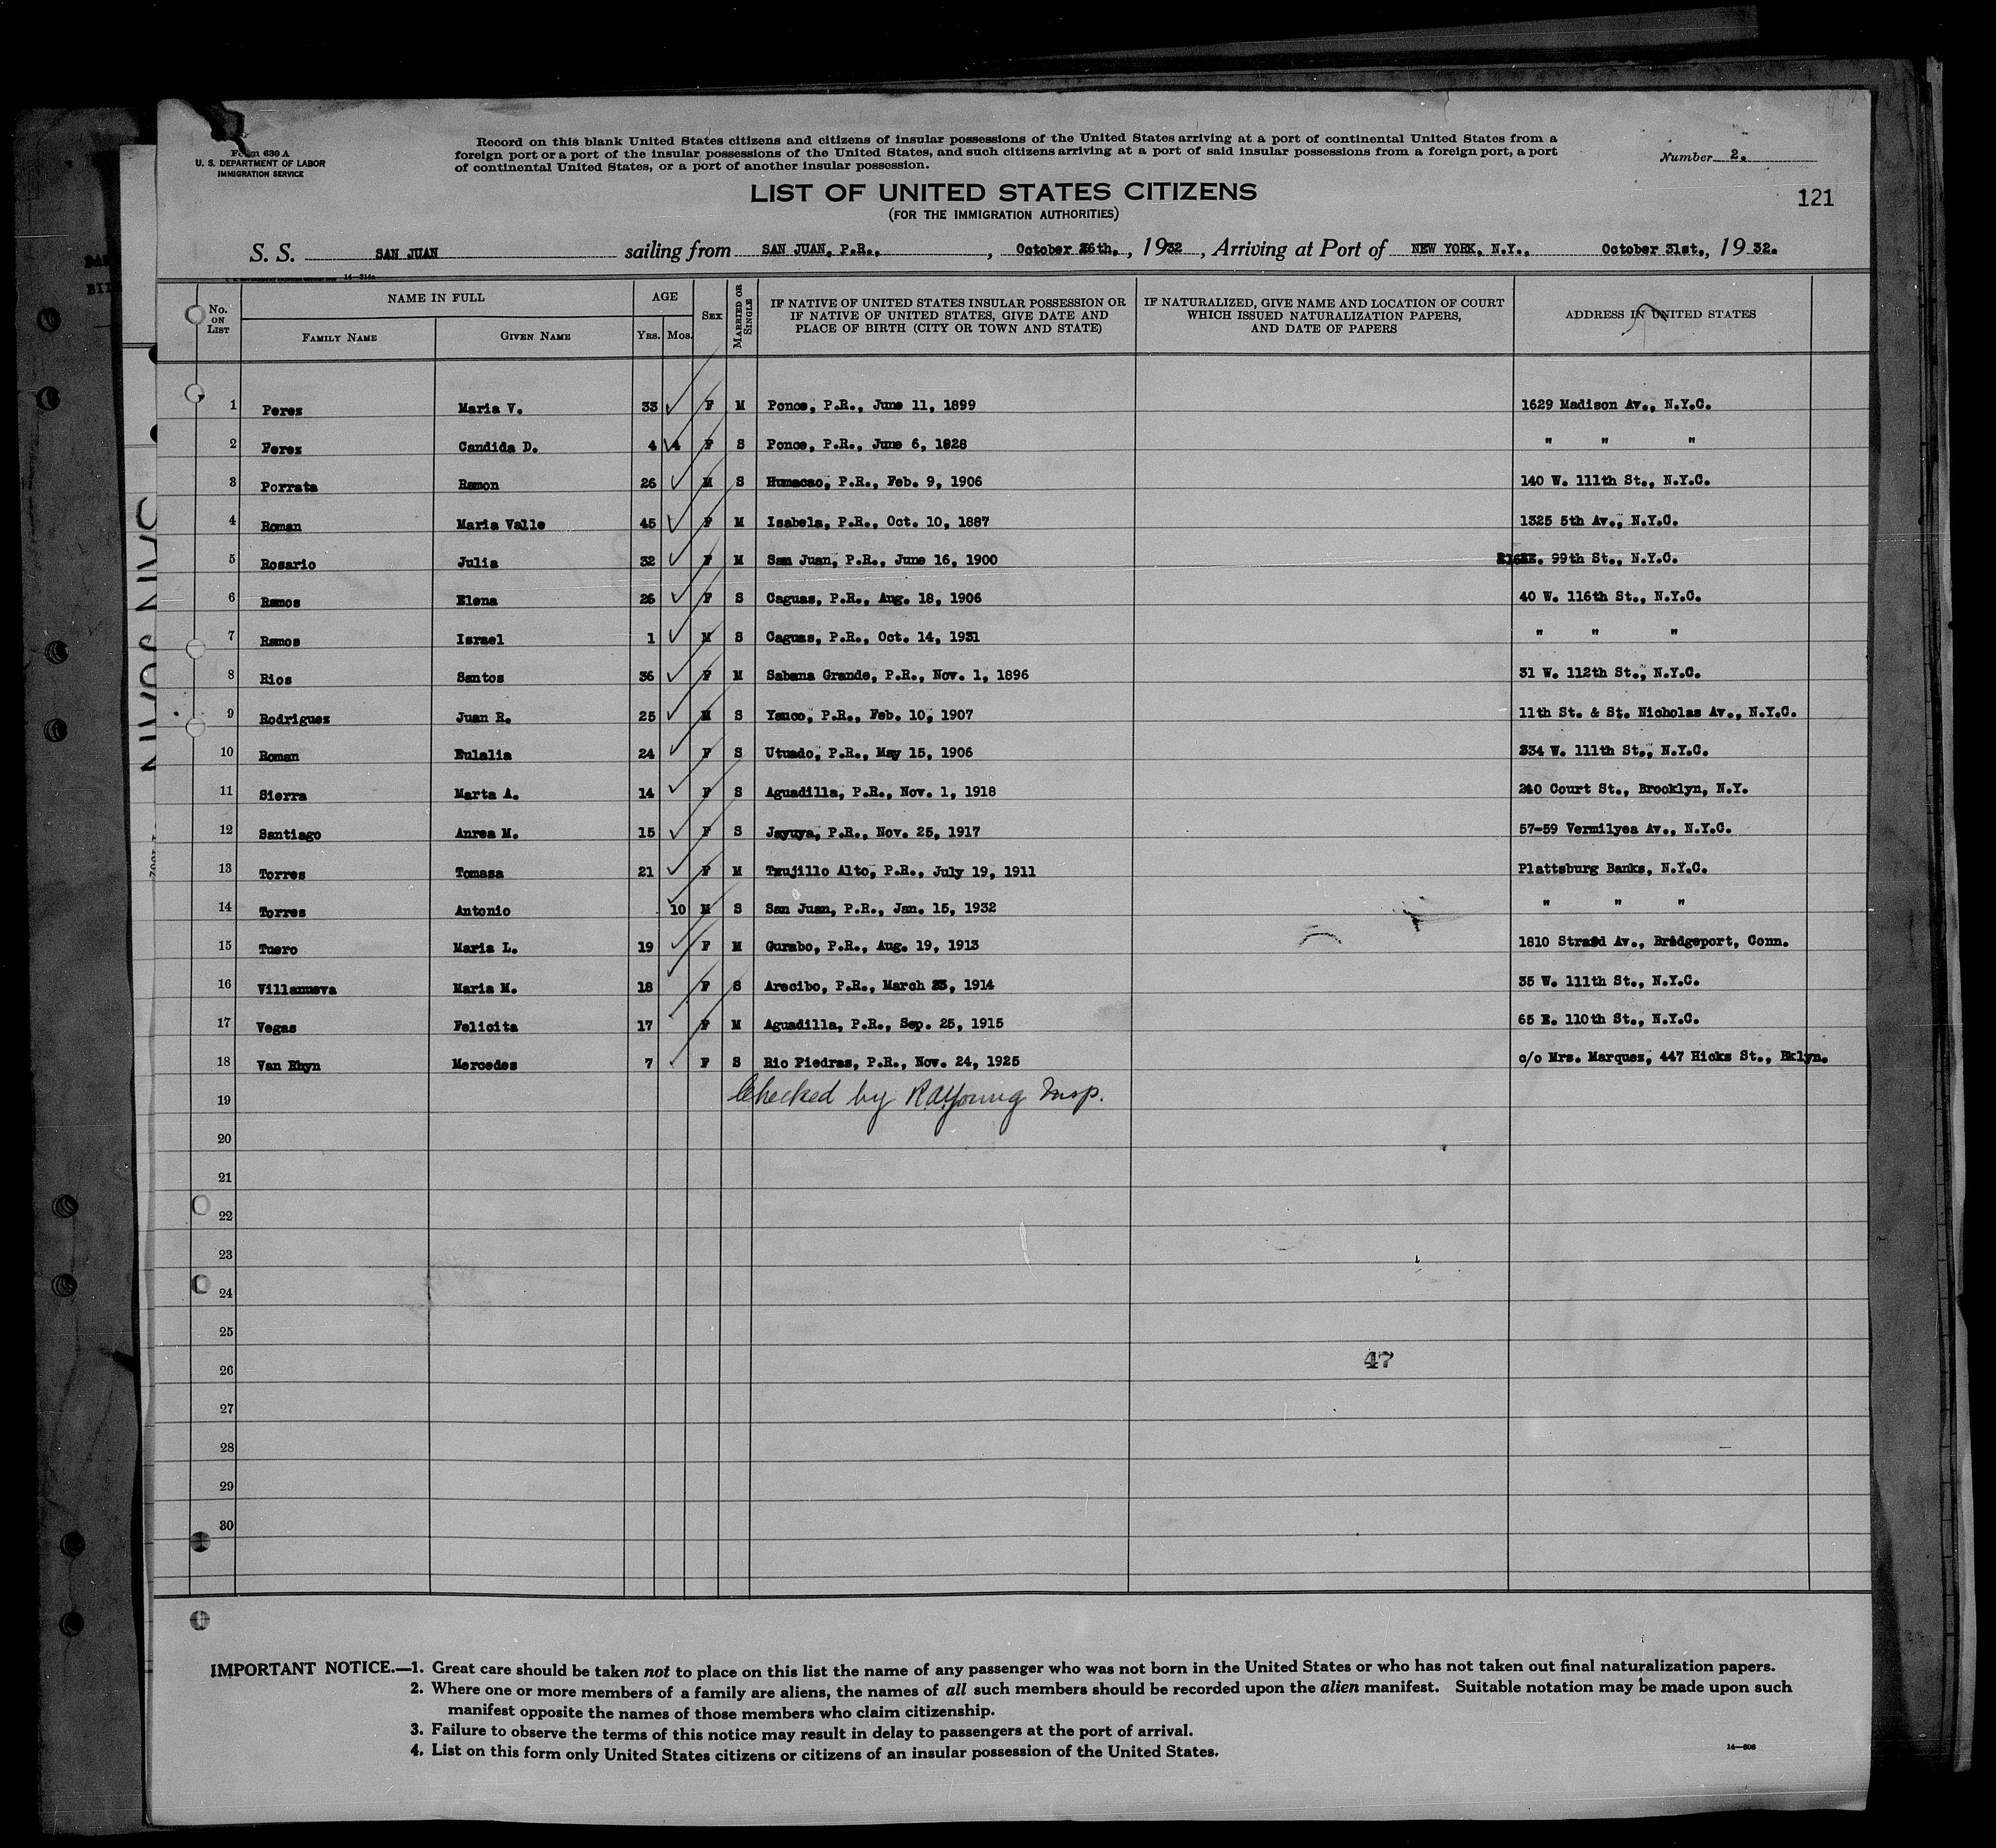 Form 630 A
U. S. DEPARTMENT OF LABOR
IMMIGRATION SERVICE
Record on this blank United States citizens and citizens of insular possessions of the United States arriving at a port of continental United States from a
foreign port or a port of the insular possessions of the United States, and such citizens arriving at a port of said insular possessions from a foreign port, a port
of continental United States, or a port of another insular possession.
Number 2.
LIST OF UNITED STATES CITIZENS
(FOR THE IMMIGRATION AUTHORITIES)
121
S. S. SAN JUAN sailing from SAN JUAN, P.R., , October 26th, , 1932 , Arriving at Port of NEW YORK, N.Y., October 31st., 1932.
No. ON LIST
NAME IN FULL
FAMILY NAME GIVEN NAME
AGE
YRS. MOS.
SEX
MARRIED OR SINGLE
IF NATIVE OF UNITED STATES INSULAR POSSESSION OR
IF NATIVE OF UNITED STATES, GIVE DATE AND
PLACE OF BIRTH (CITY OR TOWN AND STATE)
IF NATURALIZED, GIVE NAME AND LOCATION OF COURT
WHICH ISSUED NATURALIZATION PAPERS,
AND DATE OF PAPERS
ADDRESS IN UNITED STATES
1 Perez Maria V. 33 F M Ponce, P.R., June 11, 1899 1629 Madison Av., N.Y.C.
2 Perez Candida D. 4 4 F S Ponce, P.R., June 6, 1928 " " "
3 Porrata Ramon 26 M S Humacao, P.R., Feb. 9, 1906 140 W. 111th St., N.Y.C.
4 Roman Maria Valle 45 F M Isabela, P.R., Oct. 10, 1887 1325 5th Av., N.Y.C.
5 Rosario Julia 32 F M San Juan, P.R., June 16, 1900 E. 99th St., N.Y.C.
6 Ramos Elena 26 F S Caguas, P.R., Aug. 18, 1906 40 W. 116th St., N.Y.C.
7 Ramos Israel 1 M S Caguas, P.R., Oct. 14, 1931 " " "
8 Rios Santos 36 F M Sabana Grande, P.R., Nov. 1, 1896 31 W. 112th St., N.Y.C.
9 Rodriguez Juan R. 25 M S Yauco, P.R., Feb. 10, 1907 11th St. & St. Nicholas Av., N.Y.C.
10 Roman Eulalia 24 F S Utuado, P.R., May 15, 1906 234 W. 111th St., N.Y.C.
11 Sierra Marta A. 14 F S Aguadilla, P.R., Nov. 1, 1918 Court St., Brooklyn, N.Y.
12 Santiago Anrea M. 15 F S Jayuya, P.R., Nov. 25, 1917 57-59 Vermilyea Av., N.Y.C.
13 Torres Tomasa 21 F M Trujillo Alto, P.R., July 19, 1911 Plattsburg Banks, N.Y.C.
14 Torres Antonio 10 M S San Juan, P.R., Jan. 15, 1932 " " "
15 Tuero Maria L. 19 F M Gurabo, P.R., Aug. 19, 1913 1810 Av., Bridgeport, Conn.
16 Villanueva Maria M. 18 F S Arecibo, P.R., March 1914 35 W. 111th St., N.Y.C.
17 Vegas Felicita 17 F M Aguadilla, P.R., Sep. 25, 1915 65 E. 110th St., N.Y.C.
18 Van Rhyn Mercedes 7 F S Rio Piedras, P.R., Nov. 24, 1925 c/o Mrs. Marquez, 447 Hicks St., Bklyn.
19 Checked by R.A.Young Insp.
20
21
22
23
24
25
26 47
27
28
29
30
IMPORTANT NOTICE.—1. Great care should be taken not to place on this list the name of any passenger who was not born in the United States or who has not taken out final naturalization papers.
2. Where one or more members of a family are aliens, the names of all such members should be recorded upon the alien manifest. Suitable notation may be made upon such
manifest opposite the names of those members who claim citizenship.
3. Failure to observe the terms of this notice may result in delay to passengers at the port of arrival.
4. List on this form only United States citizens or citizens of an insular possession of the United States.
14—606